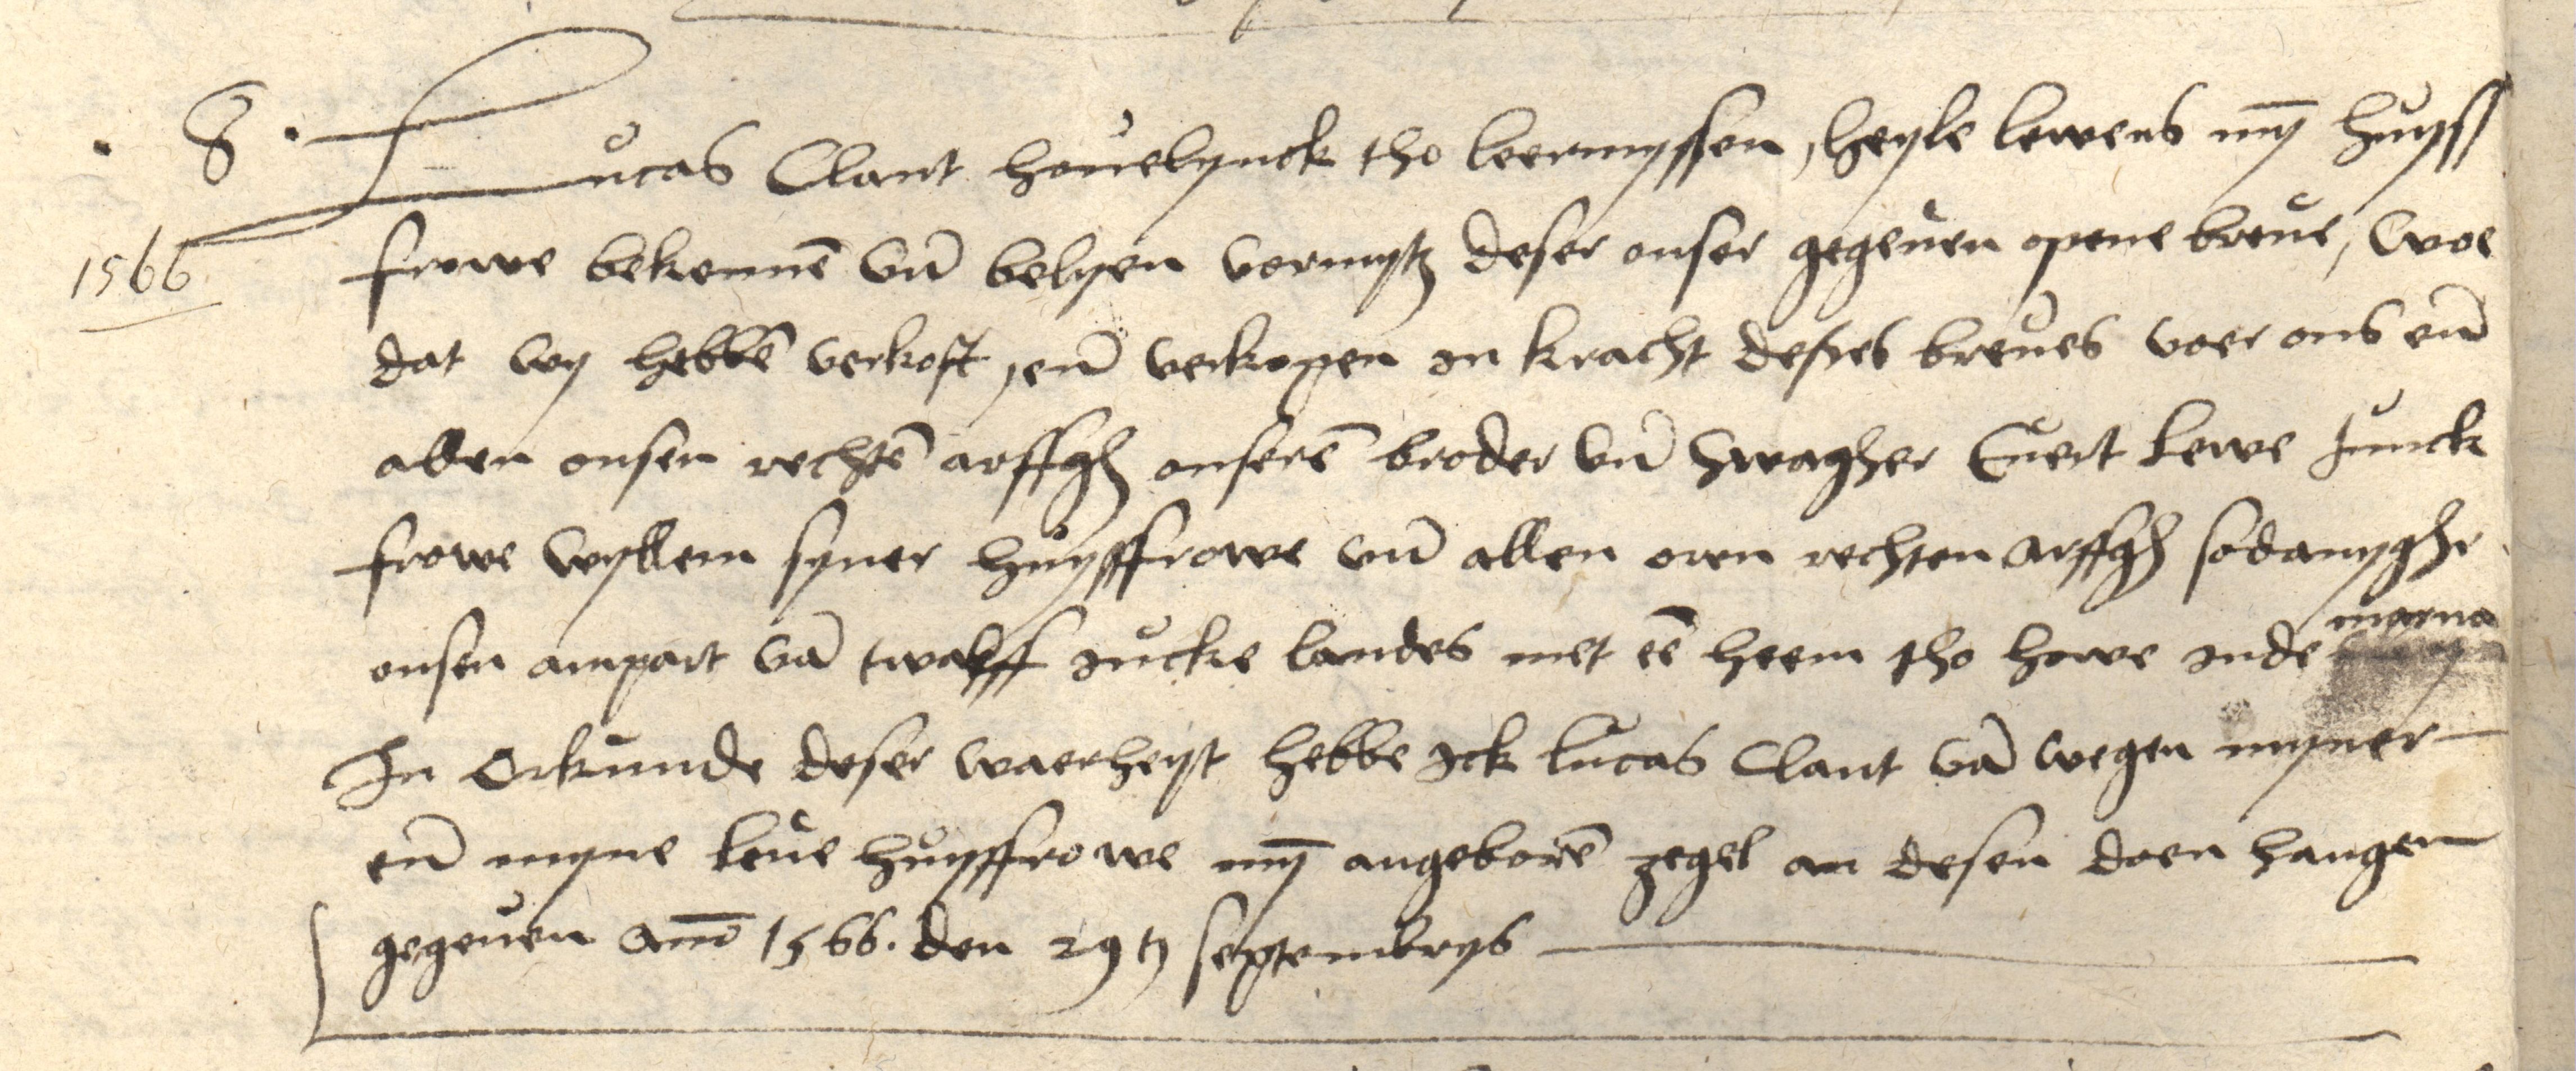 . 8 . Lucas Clant hovelynck tho Leermyssen, heyle Lewens myn̄ huyss
1566
frowe bekennē vn̄ belyen vormytz deser onser gegeven opene breve, woe
dat wy hebbē verkoft, en̄ verkopen in kracht desses breves voer ons en̄
allen onsen rechtē arffgh onserē broder vn̄ swagher Evert Lewe Junck
frowe Wyllem syner huyssfrowe vn̄ allen oren rechten arffgh sodanyghe
onsen anpart vā twalff jucke landes met eē heem tho howe inde marna
In Orkunde deser waerheyt hebbe ick Lucas Clant vā wegen myner
en̄ myne leve huyssfrowe myn̄ angeborē zegel an desen doen hangen
gegeven Anno 1566. den 29ten septembrys